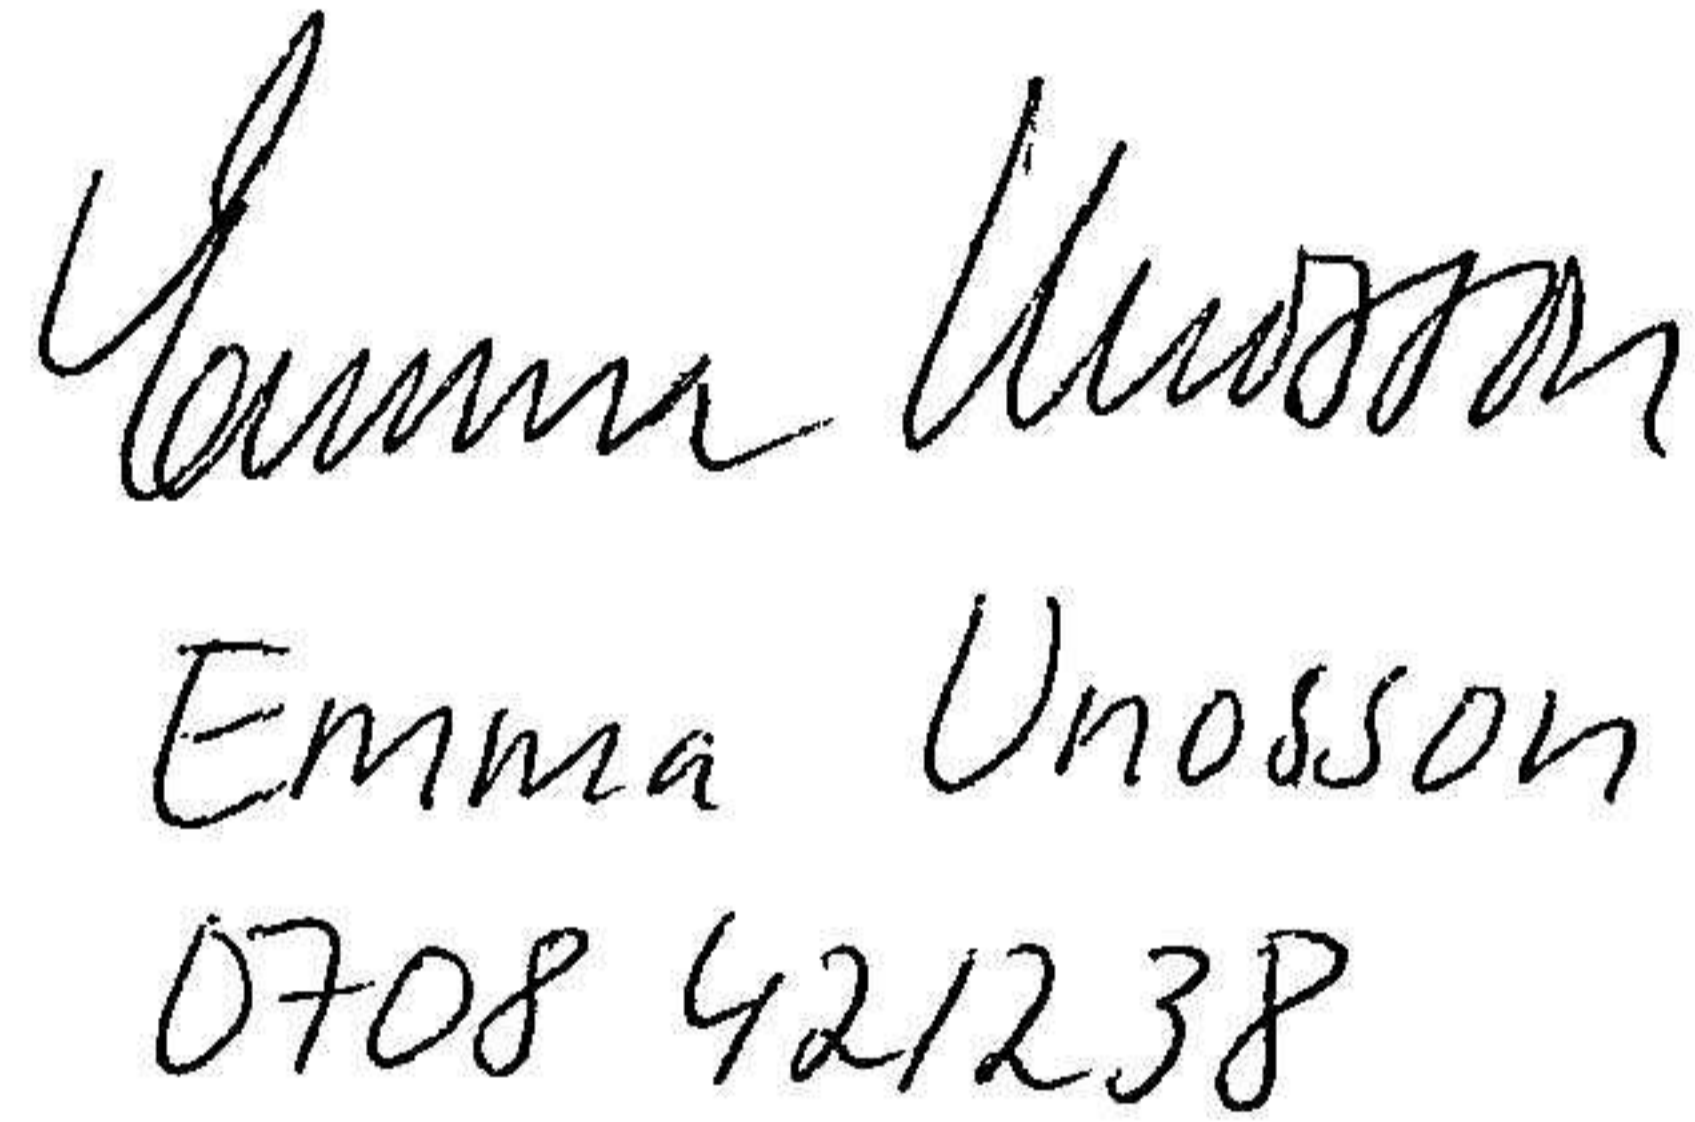 Emma Unosson
Emma Unosson
0708 421238